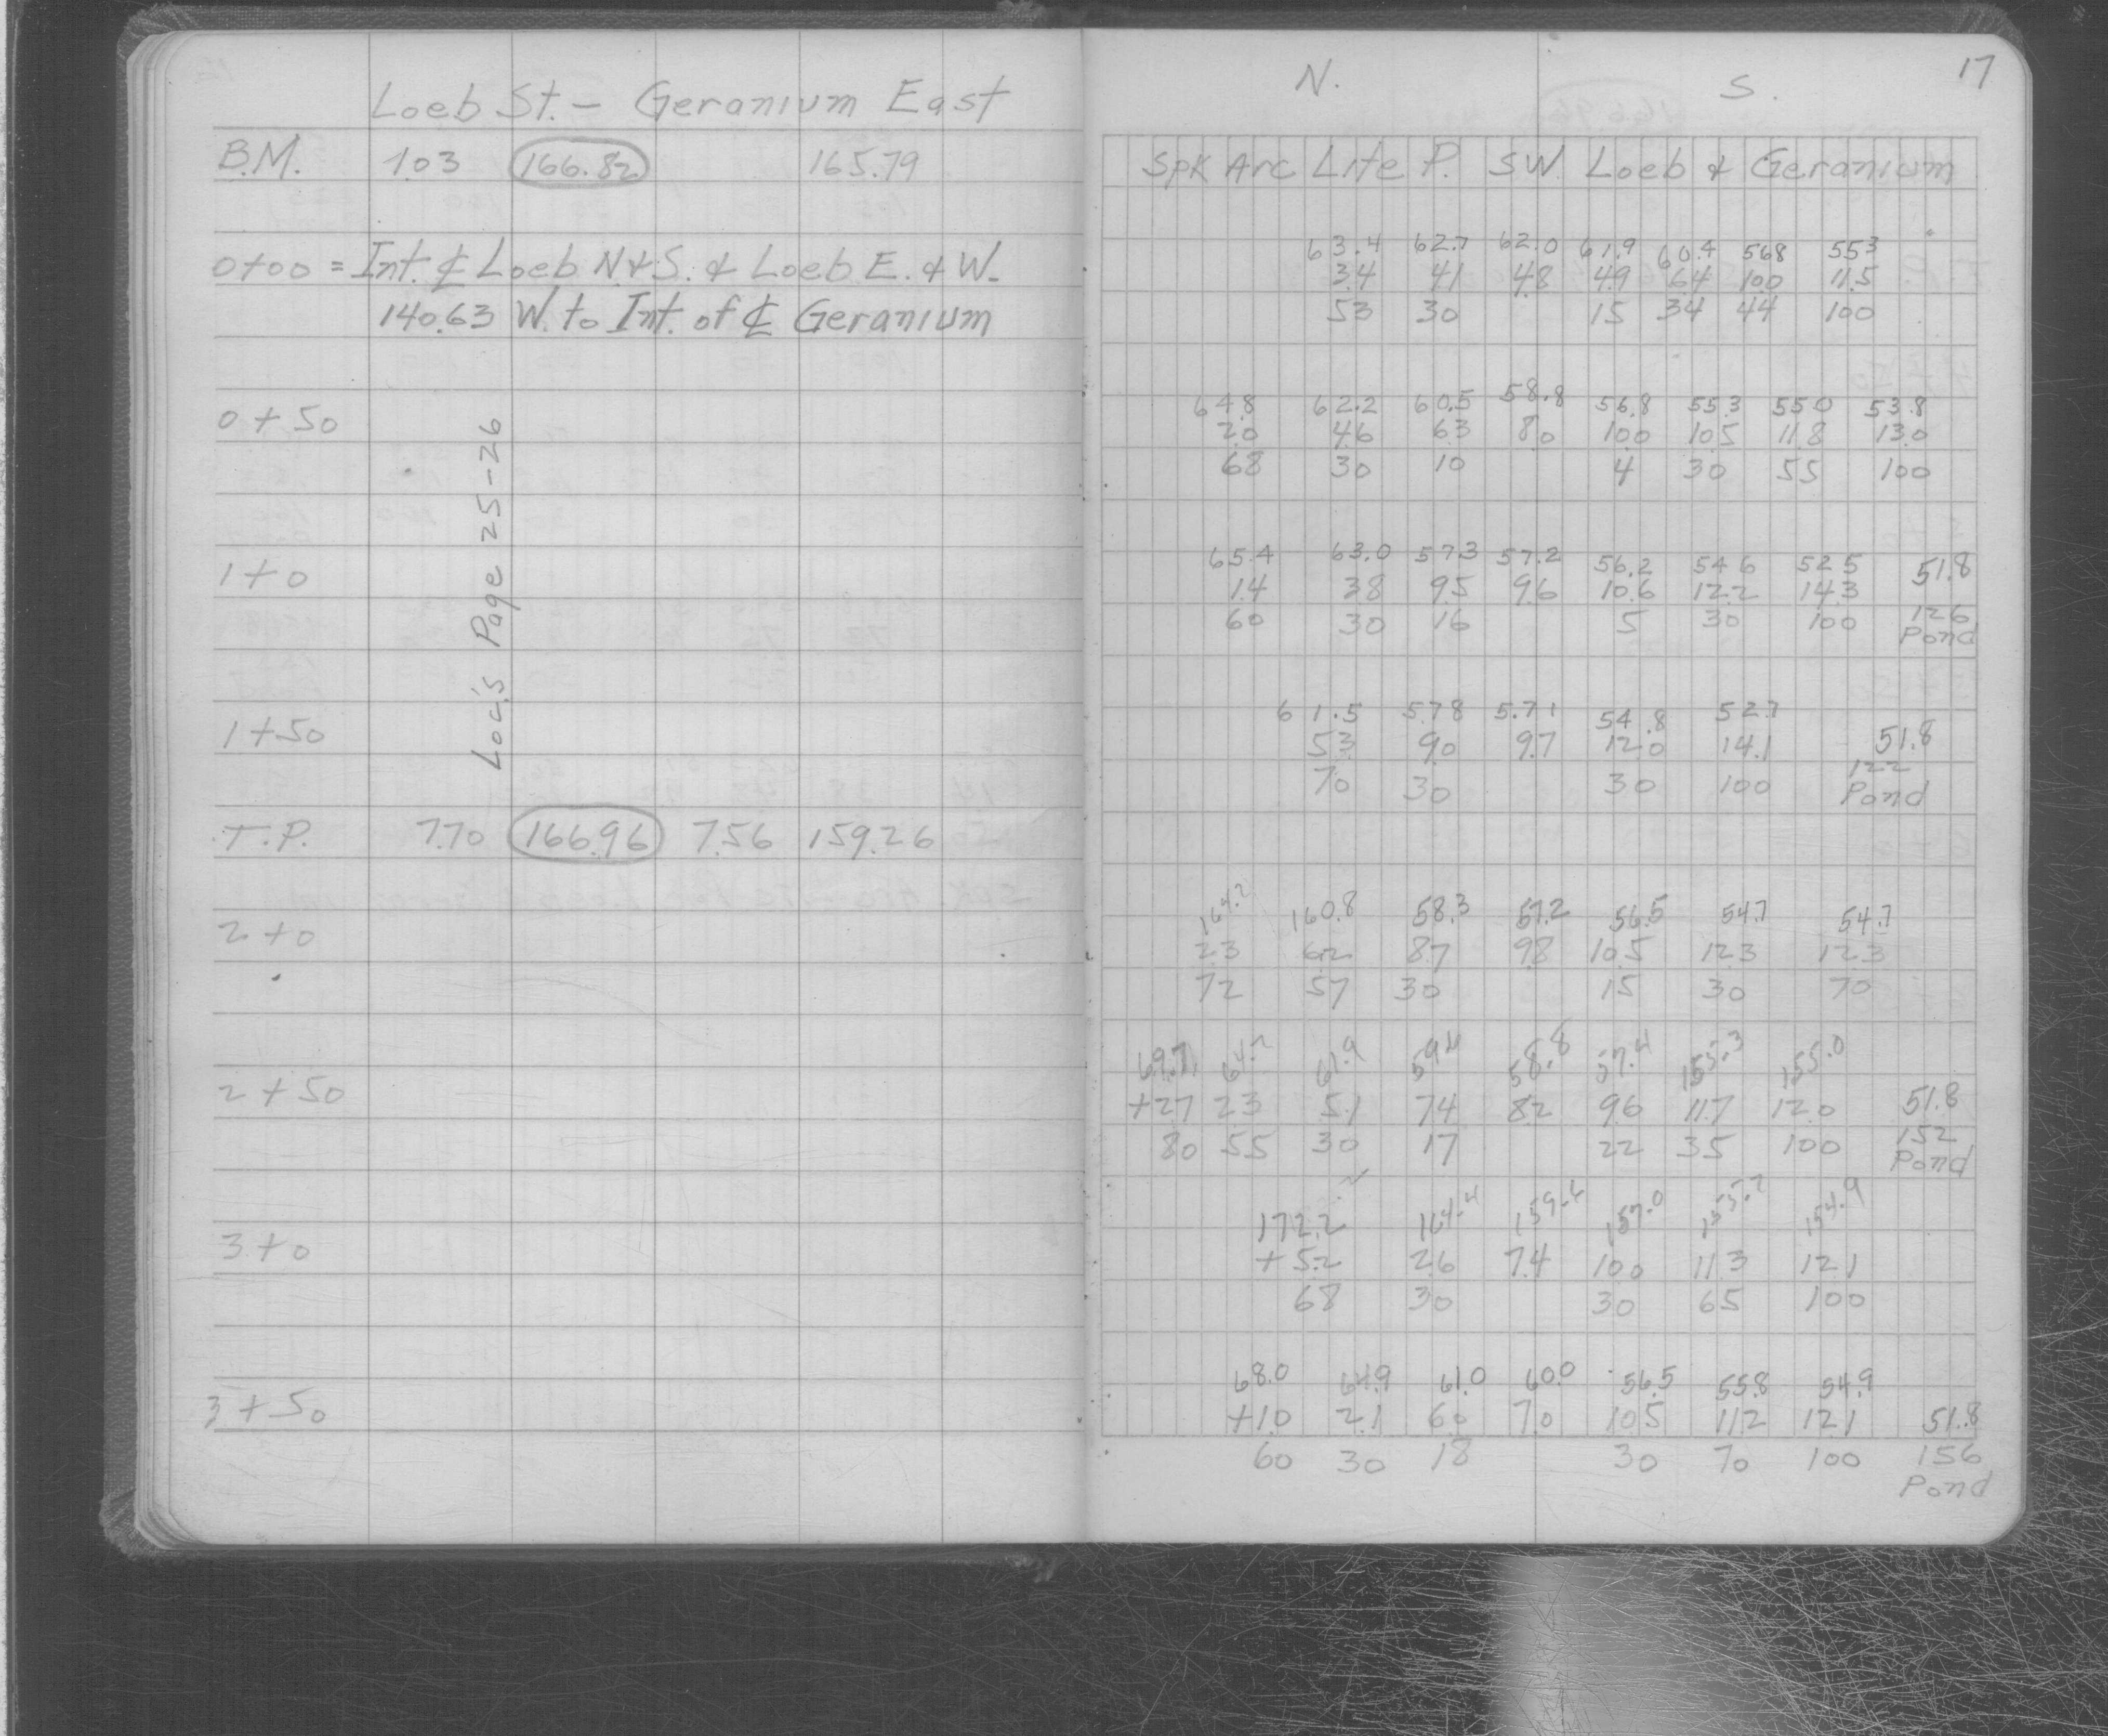 17
Loeb St. - Geranium East
N. S.
B.M. 1.03 166.82 165.79 Spk Arc Lite P. SW. Loeb & Geranium
63.4 62.7 62.0 61.9 60.4 568 553
0+00 = Int. ℄ Loeb N. & S. & Loeb E. & W. 3.4 41 4.8 49 64 10.0 11.5
140.63 W. to Int. of ℄ Geranium 53 30 15 34 44 100
64.8 62.2 60.5 58.8 56.8 55.3 550 53.8
0+50 2.0 4.6 63 80 100 10.5 11.8 13.0
68 30 10 4 30 55 100
65.4 63.0 573 57.2 56.2 546 525 51.8
1+0 1.4 38 95 9.6 10.6 12.2 14.3
60 30 16 5 30 100 126
Pond
Loc's Page 25-26
61.5 578 5.71 54.8 527
1+50 53 90 9.7 12.0 14.1 51.8
70 30 30 100 122
Pond
T.P. 7.70 166.96 7.56 159.26
164.2 160.8 58.3 57.2 56.5 54.7 54.7
2+0 23 6.2 8.7 9.8 10.5 12.3 12.3
72 57 30 15 30 70
69.7 64.7 61.9 59.4 58.8 57.4 155.3 155.0
2+50 +27 23 5.1 74 82 96 11.7 12.0 51.8
80 55 30 17 22 35 100 152
Pond
172.2 164.4 159.6 157.0 155.7 154.9
3+0 +5.2 2.6 7.4 10.0 11.3 12.1
68 30 30 65 100
68.0 64.9 61.0 60.0 56.5 55.8 54.9
3+50 +10 2.1 60 70 10.5 11.2 12.1 51.8
60 30 18 30 70 100 156
Pond